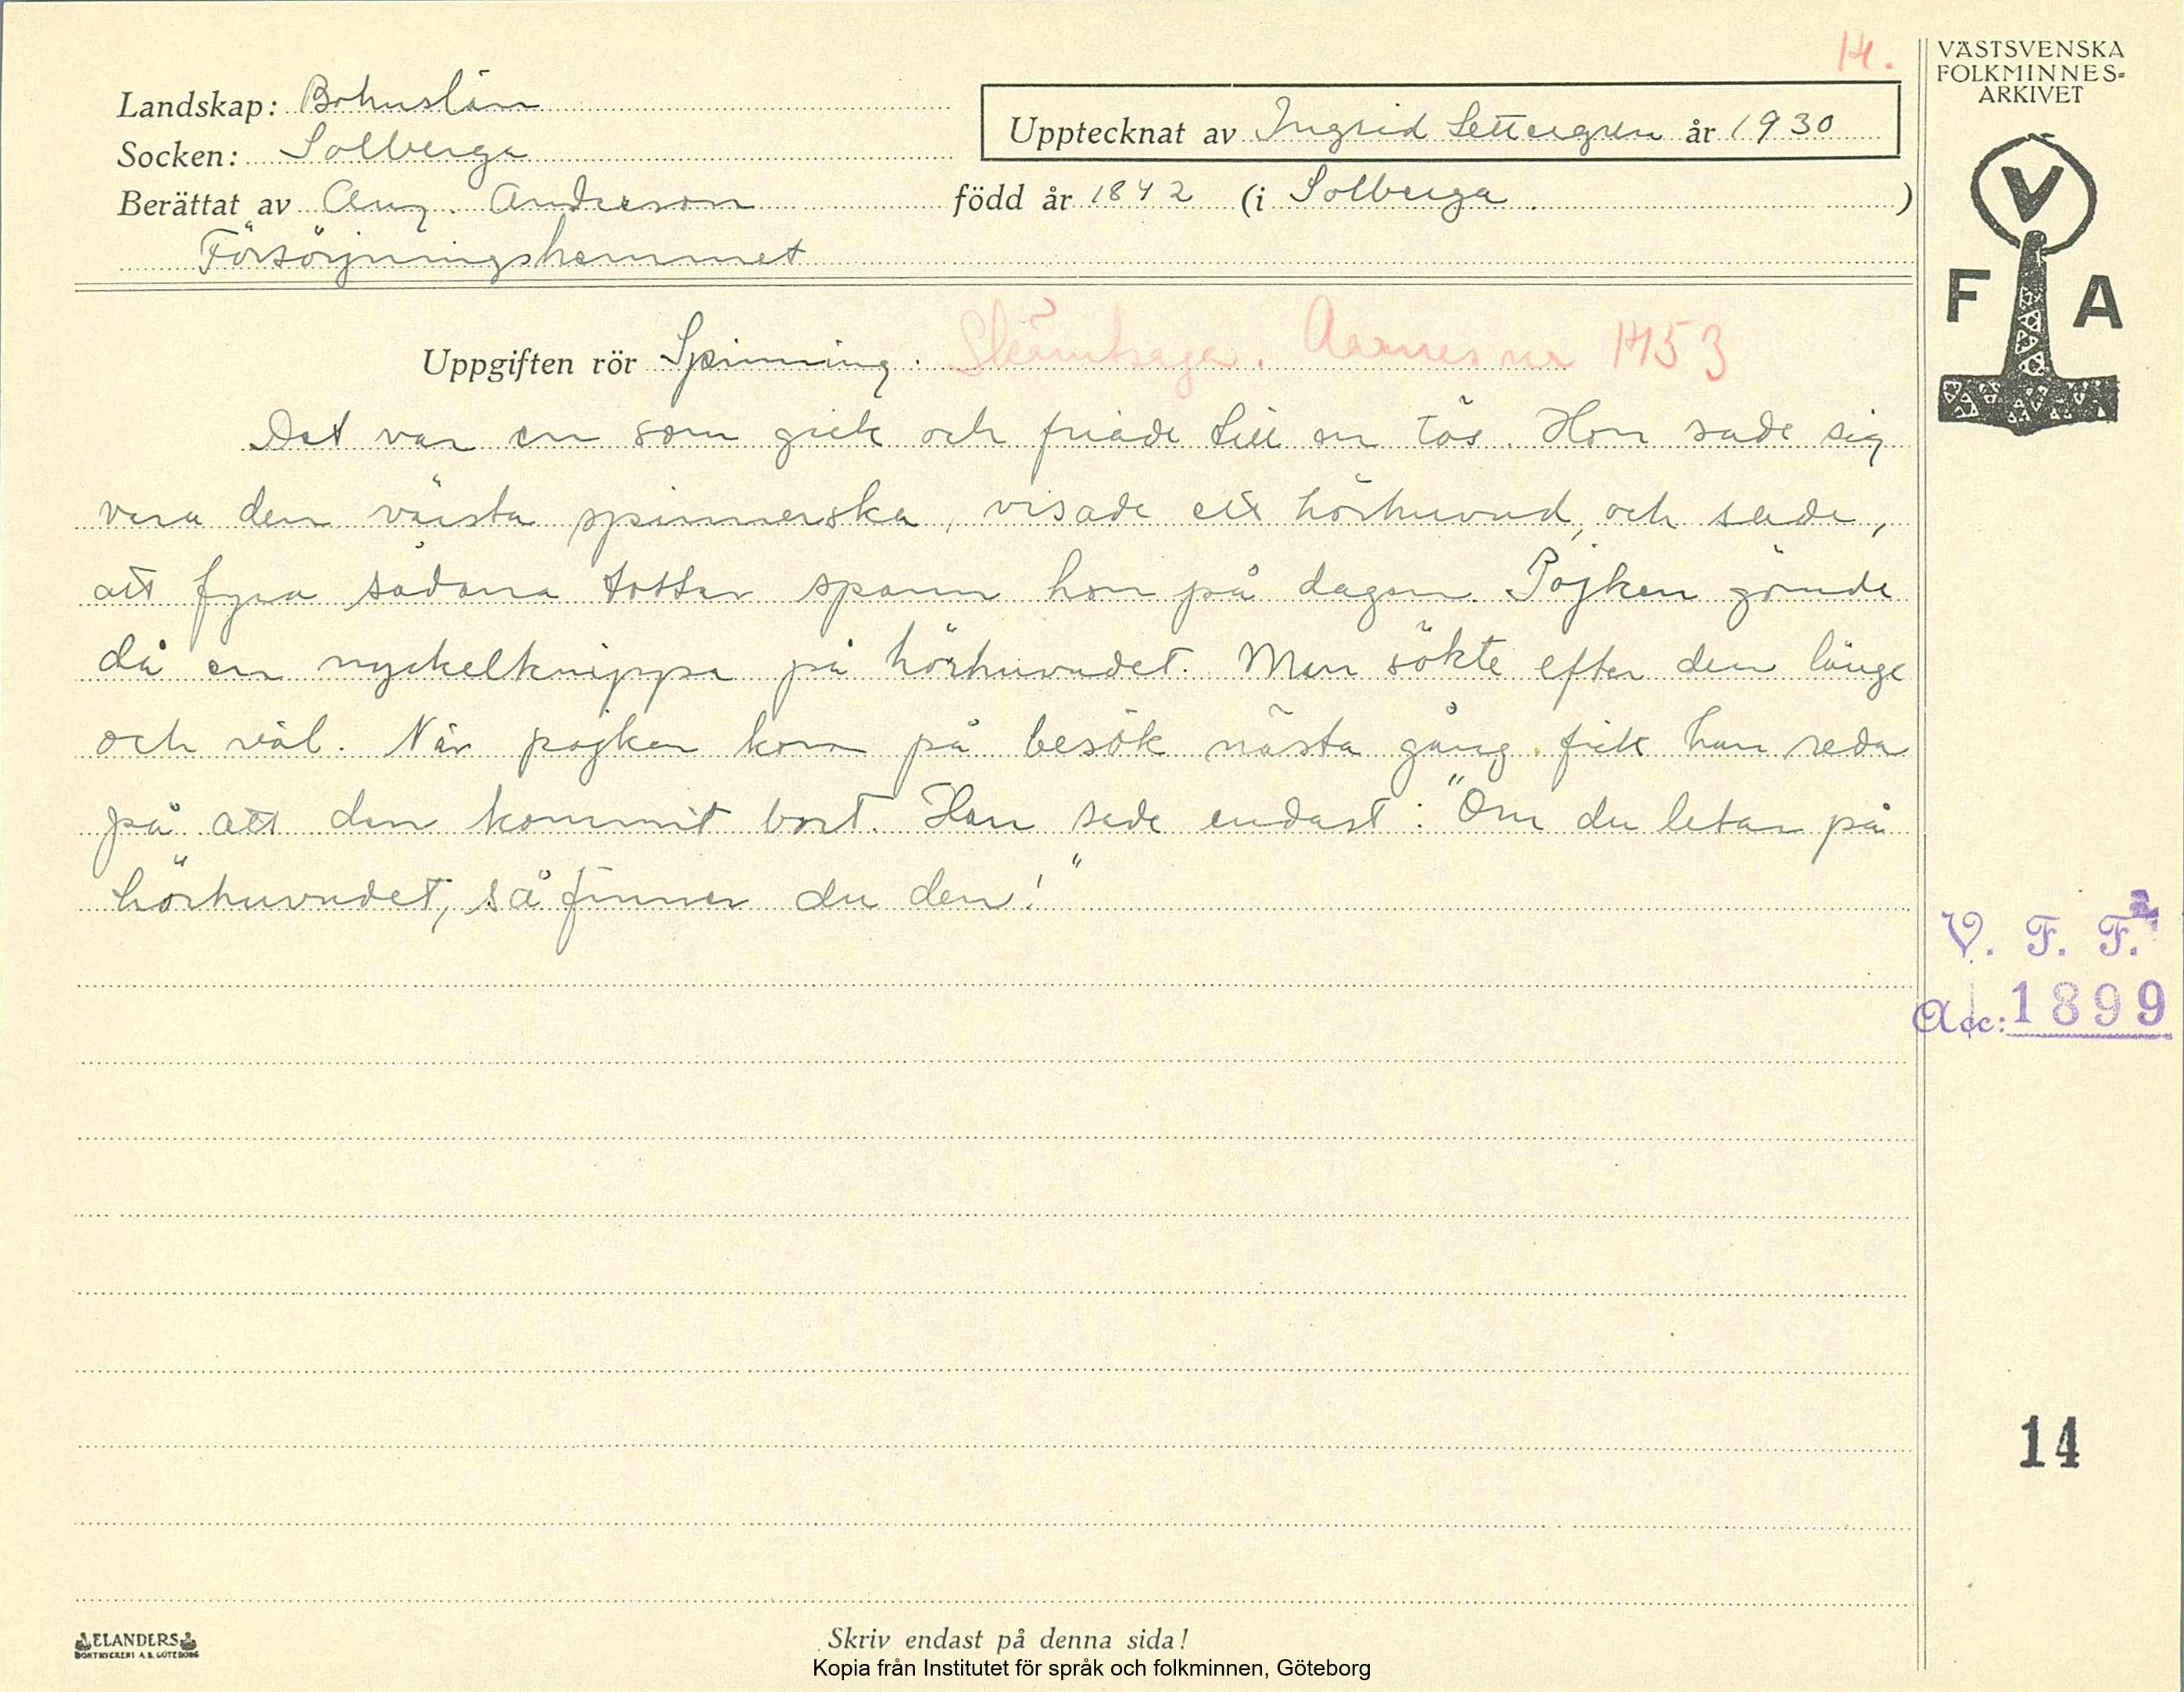 14.
VÄSTSVENSKA
FOLKMINNES-
ARKIVET
Landskap: Bohuslän
Upptecknat av Ingrid Settergren år 1930
Socken: Solberga
Berättat av Aug. Anderson född år 1842 (i Solberga )
Försörjningshemmet
V
F A
Uppgiften rör Spinning. Skämtsaga. Aarnes nr 1453
Det var en som gick och friade till en tös. Hon sade sig
vara den värsta spinnerska, visade ett hörhuvud, och sade,
att fyra sådana tottar spann hon på dagen. Pojken gömde
då en nyckelknippa på hörhuvudet. Man sökte efter den länge
och väl. När pojken kom på besök nästa gång fick han reda
på att den kommit bort. Han sade endast: "Om du letar på
hörhuvudet, så finner du den!"
V. F. F.
Acc: 1899
14
ELANDERS
BOKTRYCKERI A.B. GÖTEBORG
Skriv endast på denna sida!
Kopia från Institutet för språk och folkminnen, Göteborg